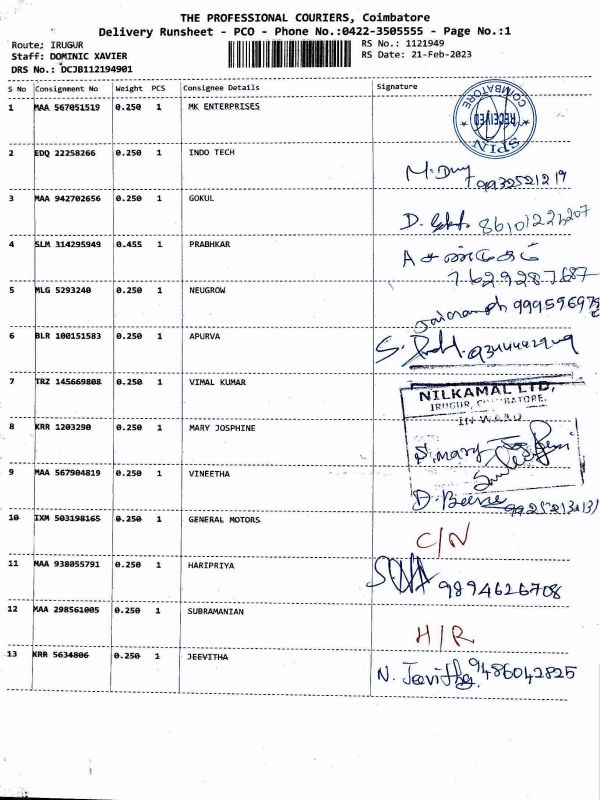 THE PROFESSIONAL COURIERS, Coimbatore
Delivery Runsheet - PCO - Phone No.:0422-3505555 - Page No.:1
Route: IRUGUR RS No.: 1121949
Staff: DOMINIC XAVIER RS Date: 21-Feb-2023
DRS No.: DCJB112194901
S No Consignment No Weight PCS Consignee Details Signature
1 MAA 567051519 0.250 1 MK ENTERPRISES
COIMBATORE
RECEIVED
SPIN
2 EDQ 22258266 0.250 1 INDO TECH
9932521219
3 MAA 942702656 0.250 1 GOKUL
4 SLM 314295949 0.455 1 PRABHKAR
7629287687
5 MLG 5293240 0.250 1 NEUGROW
6 BLR 100151583 0.250 1 APURVA
7 TRZ 145669808 0.250 1 VIMAL KUMAR
NILKAMAL LTD,
IRUGUR, COIMBATORE.
INWARD
8 KRR 1203290 0.250 1 MARY JOSPHINE
S. mary
9 MAA 567904819 0.250 1 VINEETHA
10 IXM 503198165 0.250 1 GENERAL MOTORS
C/N
11 MAA 938055791 0.250 1 HARIPRIYA
9894626708
12 MAA 298561005 0.250 1 SUBRAMANIAN
H/R
13 KRR 5634806 0.250 1 JEEVITHA
N. Jeevitha 9486042825